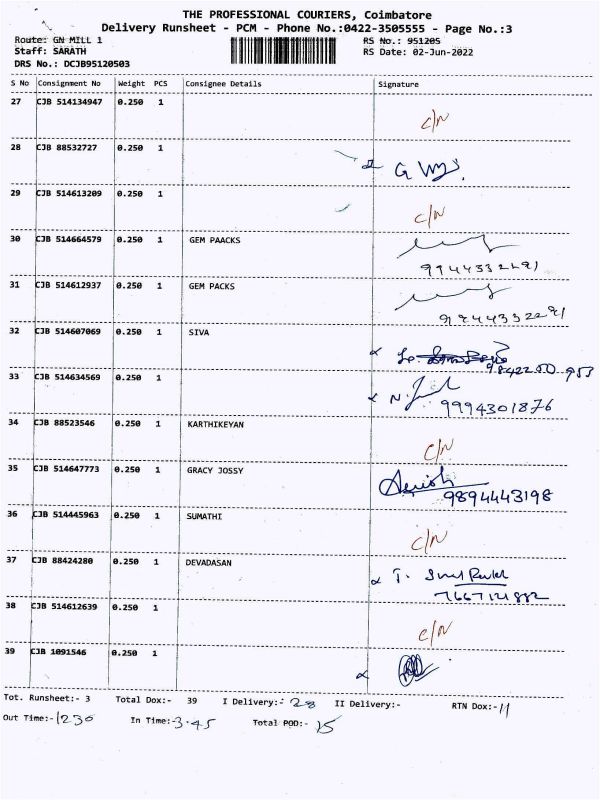 THE PROFESSIONAL COURIERS, Coimbatore
Delivery Runsheet - PCM - Phone No.:0422-3505555 - Page No.:3
Route: GN MILL 1 RS No.: 951205
Staff: SARATH RS Date: 02-Jun-2022
DRS No.: DCJB95120503
S No Consignment No Weight PCS Consignee Details Signature
27 CJB 514134947 0.250 1 C/N
28 CJB 88532727 0.250 1
29 CJB 514613209 0.250 1 C/N
30 CJB 514664579 0.250 1 GEM PAACKS
9944332291
31 CJB 514612937 0.250 1 GEM PACKS
9944332291
32 CJB 514607069 0.250 1 SIVA
33 CJB 514634569 0.250 1
9994301876
34 CJB 88523546 0.250 1 KARTHIKEYAN C/N
35 CJB 514647773 0.250 1 GRACY JOSSY
9894443198
36 CJB 514445963 0.250 1 SUMATHI C/N
37 CJB 88424280 0.250 1 DEVADASAN
38 CJB 514612639 0.250 1 C/N
39 CJB 1091546 0.250 1
Tot. Runsheet:- 3 Total Dox:- 39 I Delivery:- 28 II Delivery:- RTN Dox:- 11
Out Time:- 1230 In Time:- 3.45 Total POD:- 15